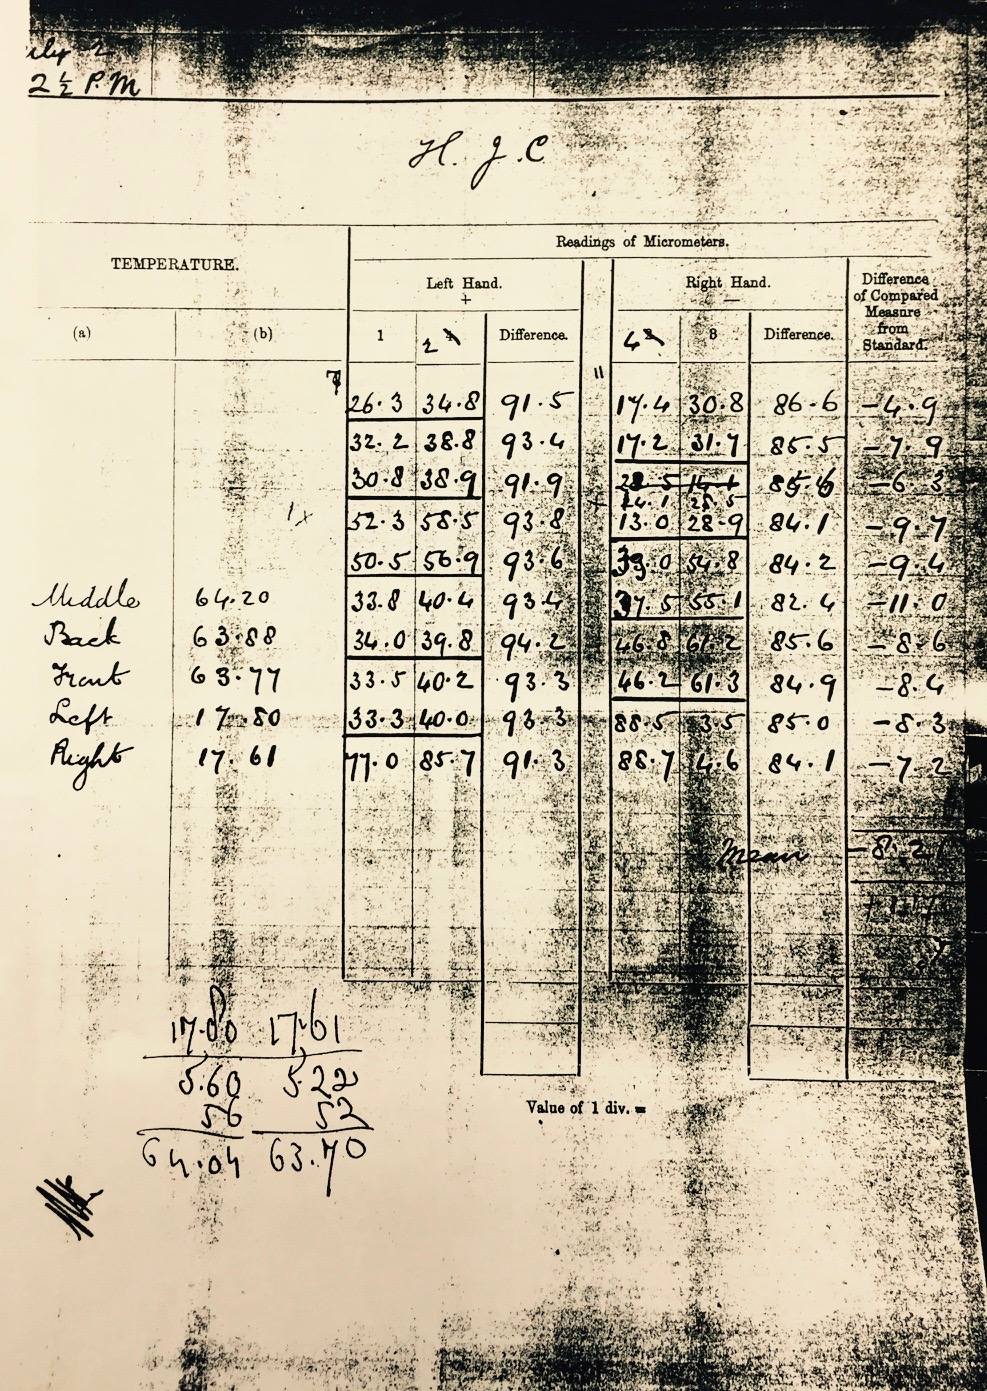 2 ½ P.M
H. J. C
Readings of Micrometers.
TEMPERATURE.
Left Hand. Right Hand. Difference
+ — of Compared
Measure
(a) (b) 1 2 Difference. 4 3 Difference. from
Standard.
26.3 34.8 91.5 17.4 30.8 86.6 -4.9
32.2 38.8 93.4 17.2 31.7 85.5 -7.9
30.8 38.9 91.9 85.6 -6.3
24.1 28.5
1x 52.3 58.5 93.8 13.0 28.9 84.1 -9.7
50.5 56.9 93.6 39.0 54.8 84.2 -9.4
Middle 64.20 33.8 40.4 93.4 37.5 55.1 82.4 -11.0
Back 63.88 34.0 39.8 94.2 46.8 61.2 85.6 -8.6
Front 63.77 33.5 40.2 93.3 46.2 61.3 84.9 -8.4
Left 17.80 33.3 40.0 93.3 88.5 3.5 85.0 -8.3
Right 17.61 77.0 85.7 91.3 88.7 4.6 84.1 -7.2
Mean -8.21
17.80 17.61
5.60 5.22
56 52
64.04 63.70
Value of 1 div. =